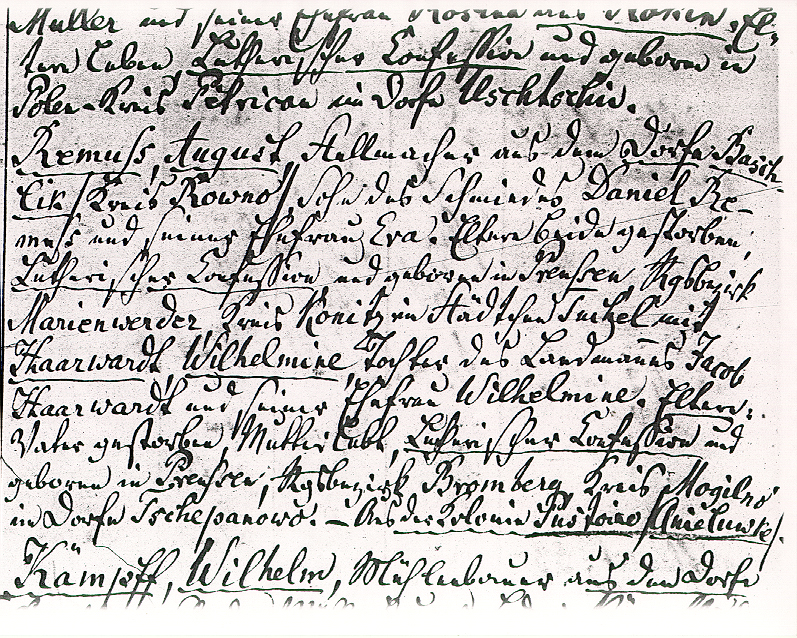 Müller und seiner Ehefrau Rosina aus Konin. El-
tern leben, Lutherischer Confession und geboren in
Polen-Kreis Petricau im Dorfe Uschtschin.
Remuss, August, Stellmacher aus dem Dorfe Basch-
lik /Kreis Rowno/ Sohn des Schmiedes Daniel Re-
muss und seiner Ehefrau Eva. Eltern beide gestorben,
Lutherischer Confession, und geboren in Preussen, Rgsbezirk
Marienwerder, Kreis Konitz im Städtchen Tuchel mit
Haarwardt, Wilhelmine, Tochter des Landmanns Jacob
Haarwardt und seiner Ehefrau Wilhelmine. Eltern:
Vater gestorben, Mutter lebt, Lutherischer Confession und
geboren in Preussen, Rgsbezirk Bromberg, Kreis Mogilno
im Dorfe Tschepanowo. – Aus der Kolonie /Anieluwke/.
Kämpff, Wilhelm, Mühlenbauer aus dem Dorfe